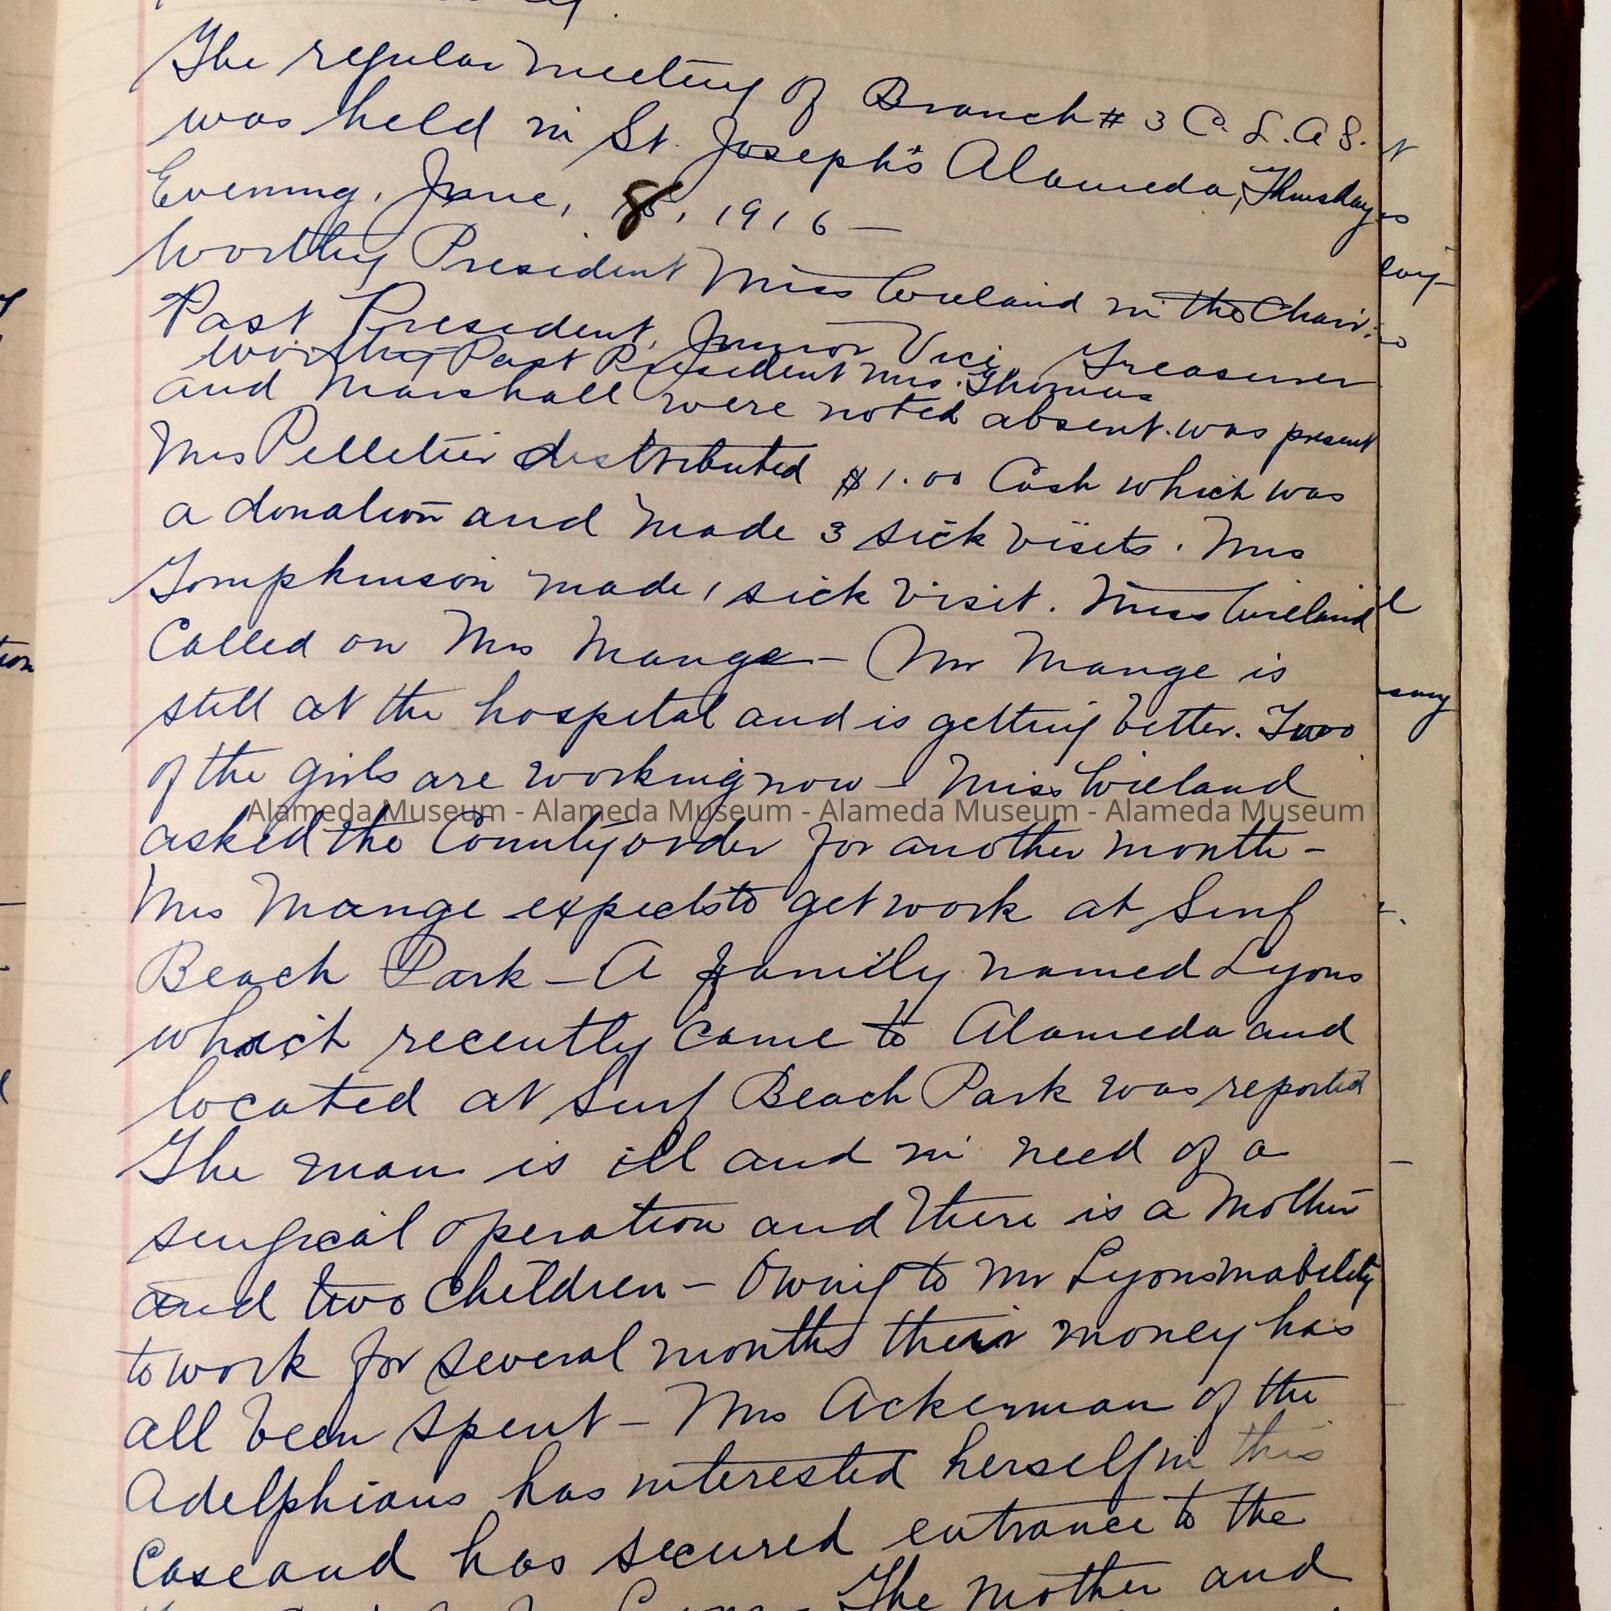 The regular meeting of Branch # 3 C. L. A. S.
was held in St. Joseph's Alameda, Thursday
Evening, June, 8, 1916 —
Worthy President Miss Wieland in the Chair.
Past President, Junior Vice, Treasurer
Worthy Past President Mrs. Thomas
and Marshall were noted absent. was present
Mrs Pelletier distributed $1.00 Cash which was
a donation and made 3 sick visits. Mrs
Tompkinson made 1 sick visit. Miss Wieland
Called on Mrs Mange — Mr Mange is
still at the hospital and is getting better. Two
of the girls are working now — Miss Wieland
Alameda Museum - Alameda Museum - Alameda Museum - Alameda Museum
asked the County order for another month —
Mrs Mange expects to get work at Surf
Beach Park — A family named Lyons
which recently came to Alameda and
located at Surf Beach Park was reported
The man is ill and in need of a
surgical operation and there is a Mother
and two children — Owing to Mr Lyons inability
to work for several months their money has
all been spent — Mrs Ackerman of the
Adelphians has interested herself in this
Case and has secured entrance to the
The mother and